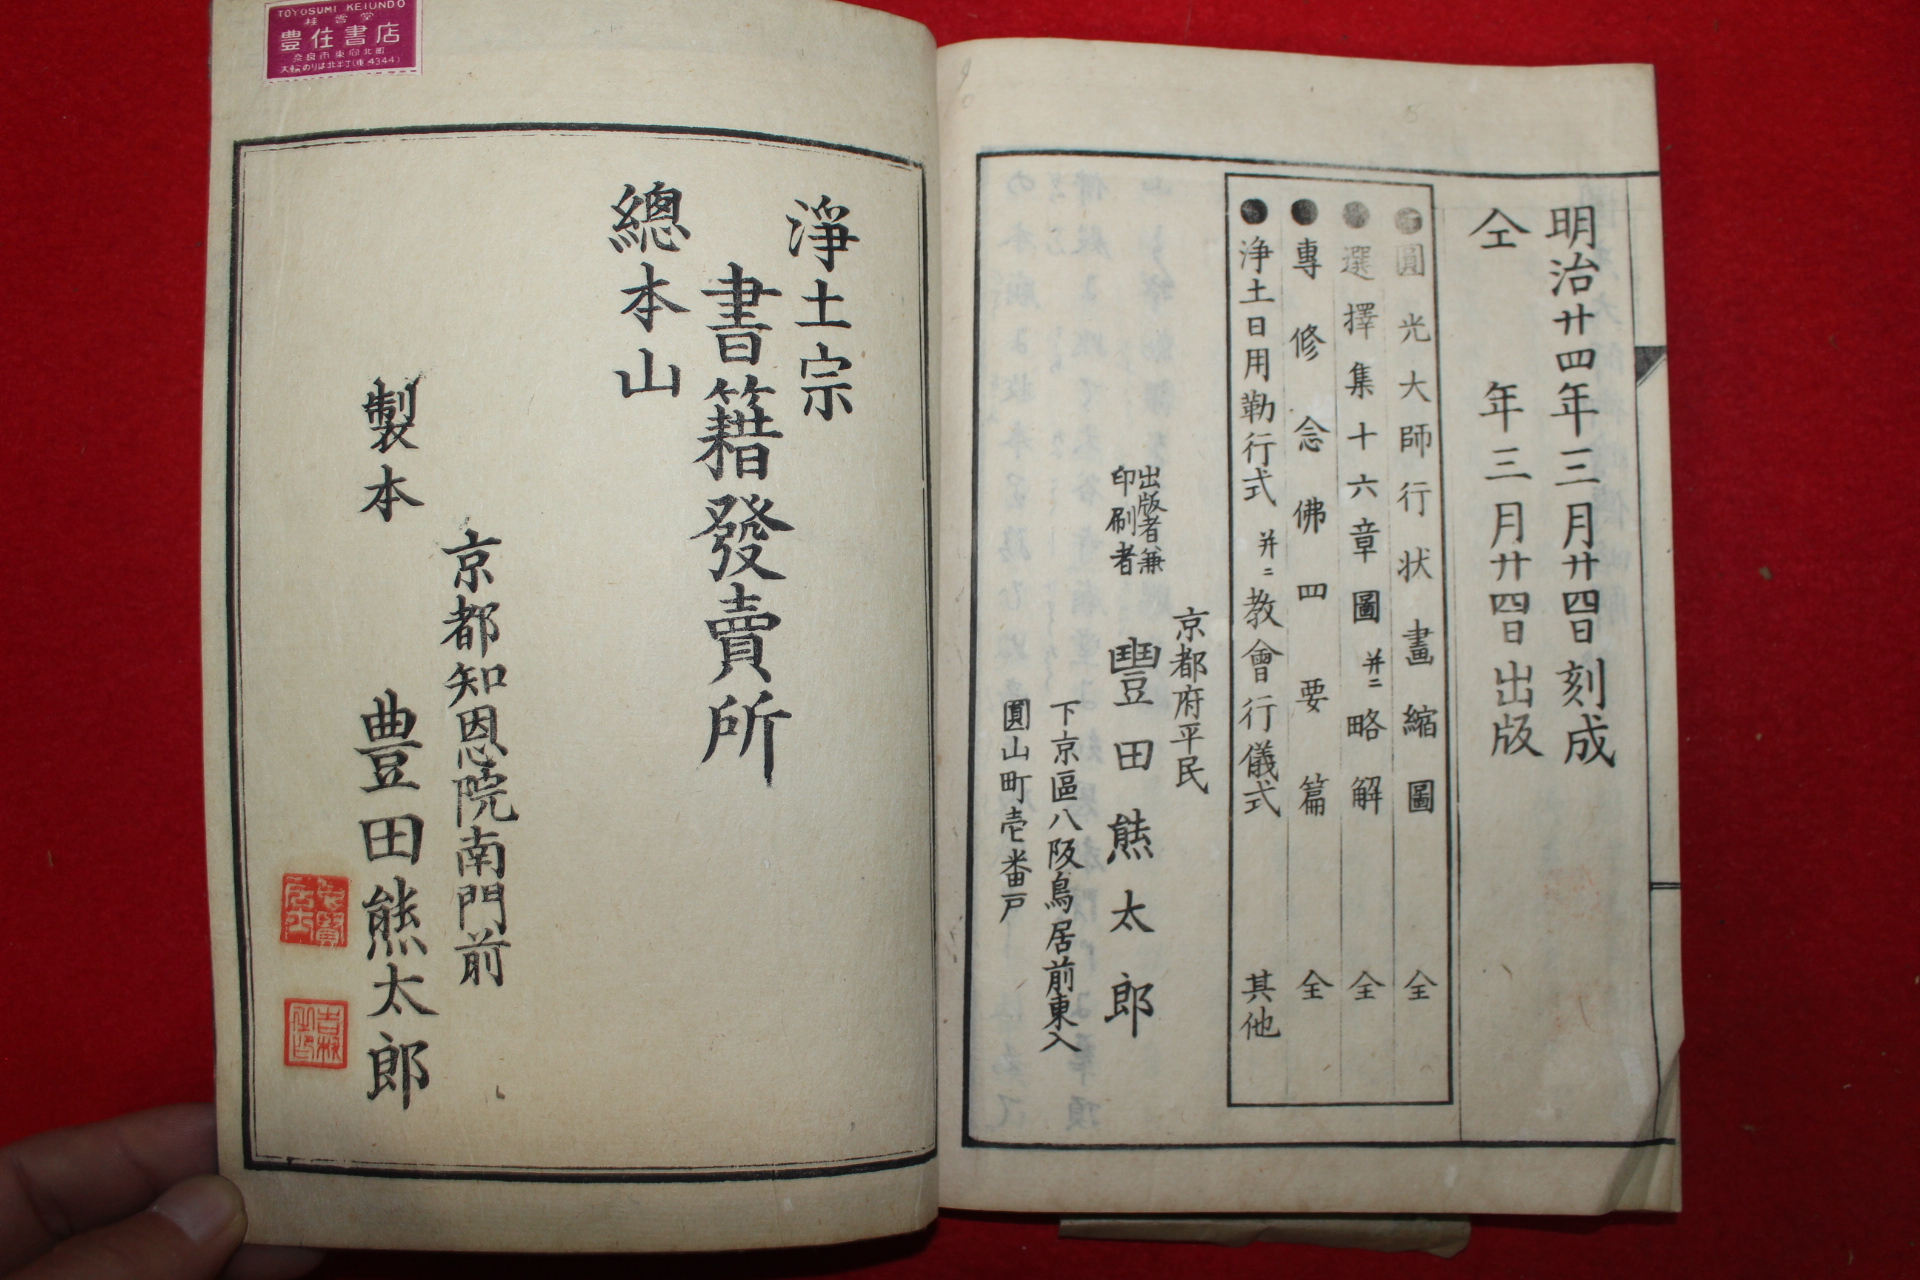 明治廿四年三月廿四日刻成
仝　年三月廿四日出版
圓光大師行状畫縮圖　全
選擇集十六章圖并ニ略解　全
●專修念佛四要篇　全
●淨土日用勤行式并ニ教會行儀式　其他
京都府平民
出版者兼
印刷者
豐田熊太郎
下京區八阪鳥居前東入
圓山町壱番戸
淨土宗
書籍發賣所
總本山
京都知恩院南門前
製本　豊田熊太郎
TOYOSUMI KEIUNDO
豊住書店
奈良市東向北町